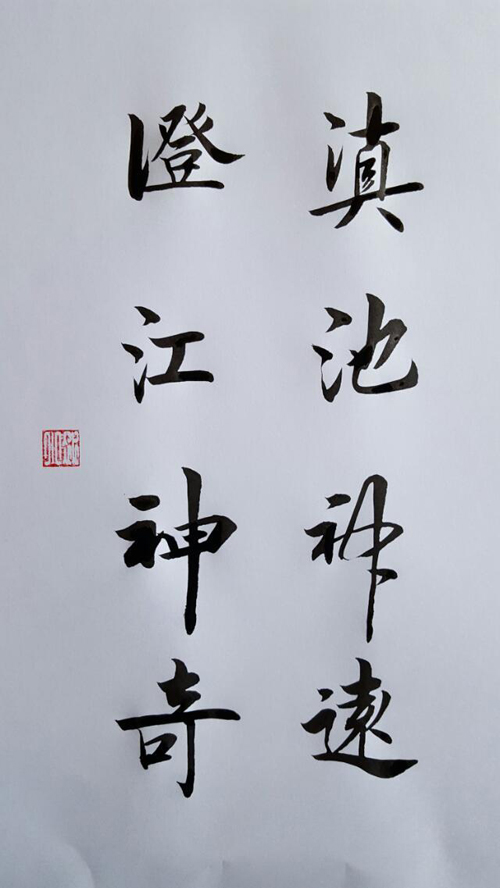 滇池神遠
澄江神奇